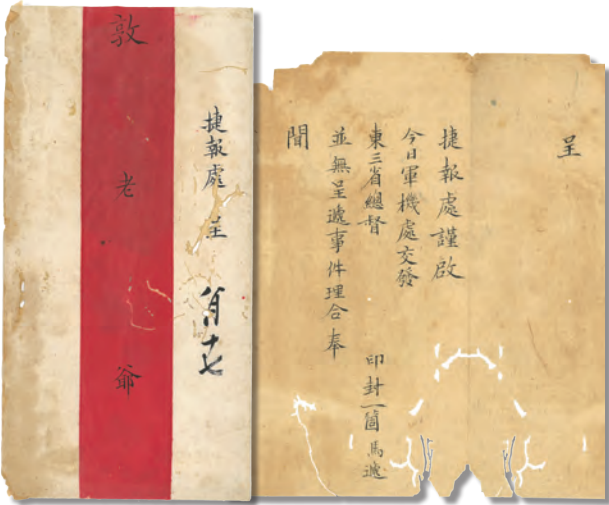 呈
捷報處謹啟
今日軍機處交發
東三省總督 印封一箇馬遞
並無呈遞事件理合奉
聞
捷報處 呈 八月十七
敦老爺